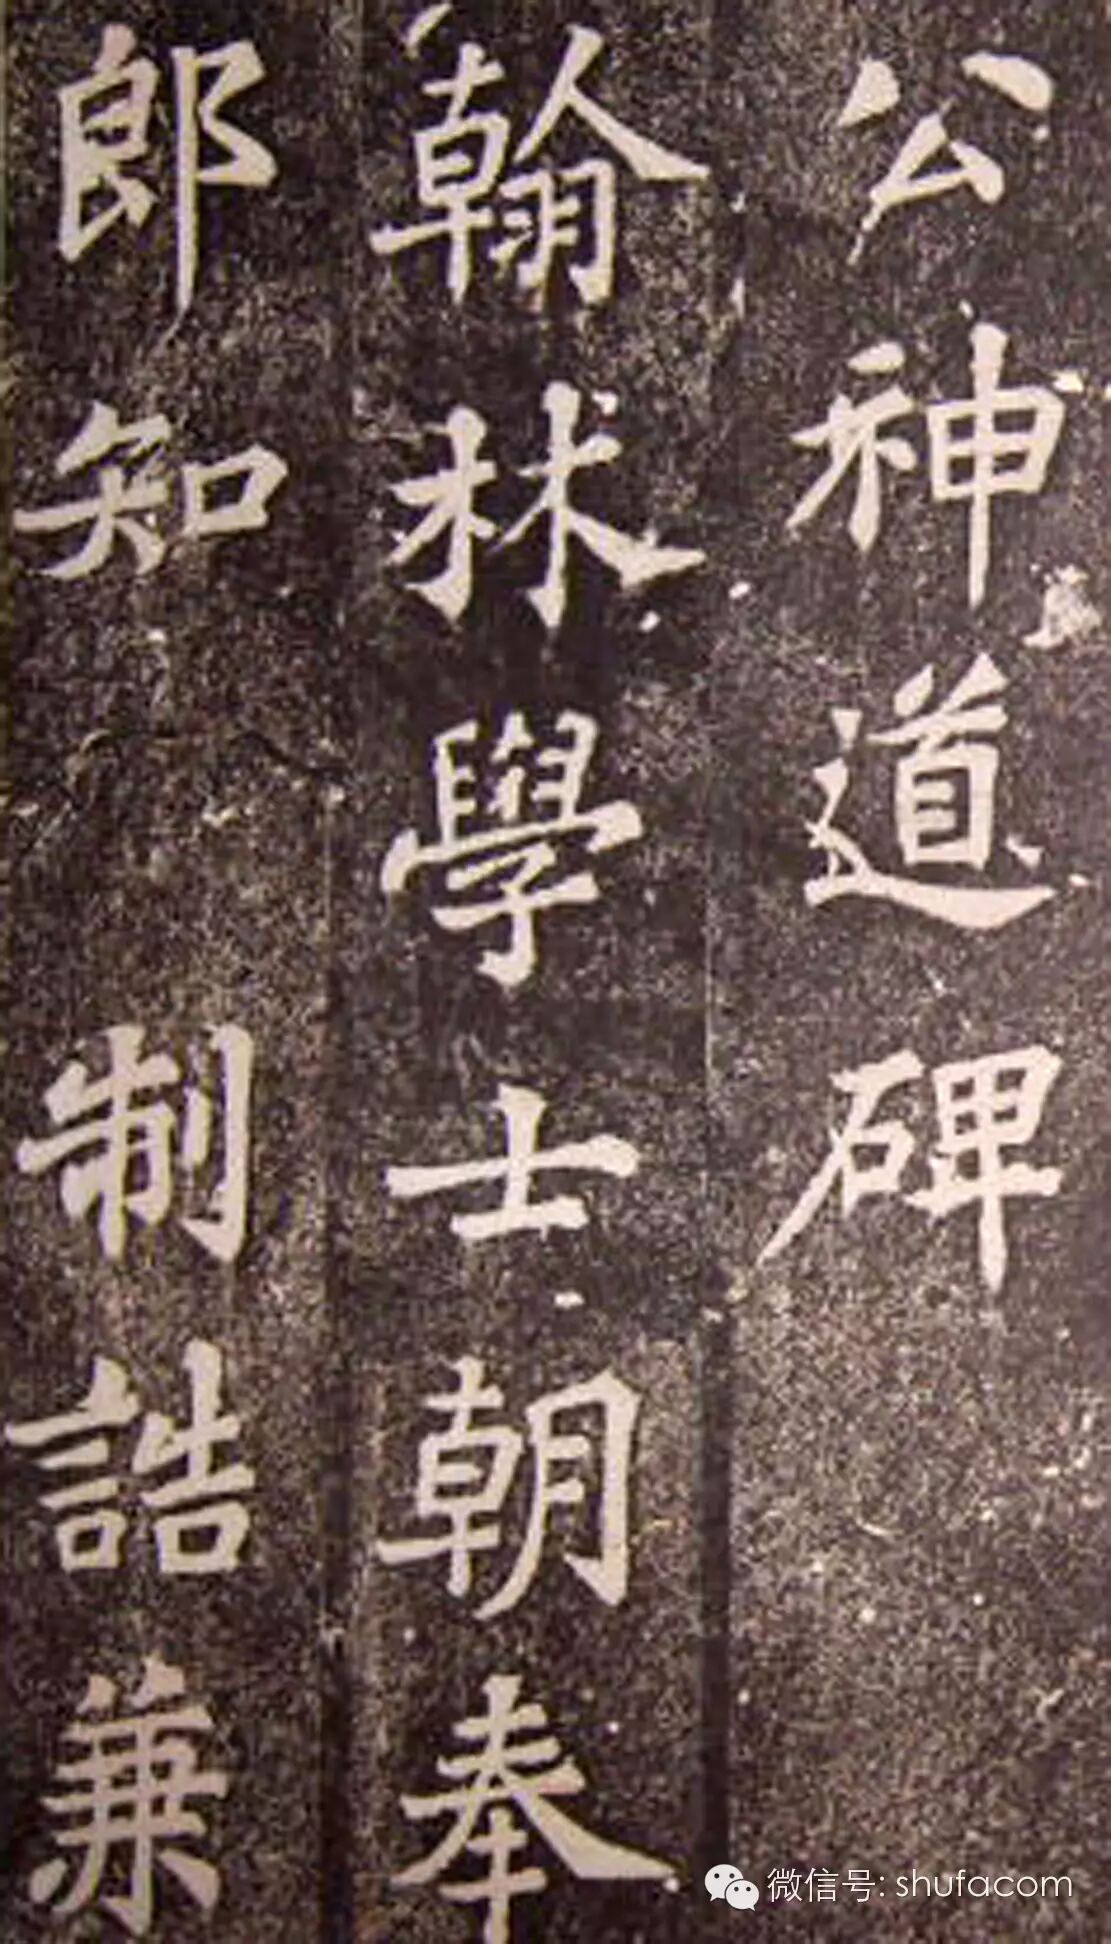 公神道碑
翰林學士朝奉
郎知制誥兼
微信号: shufacom